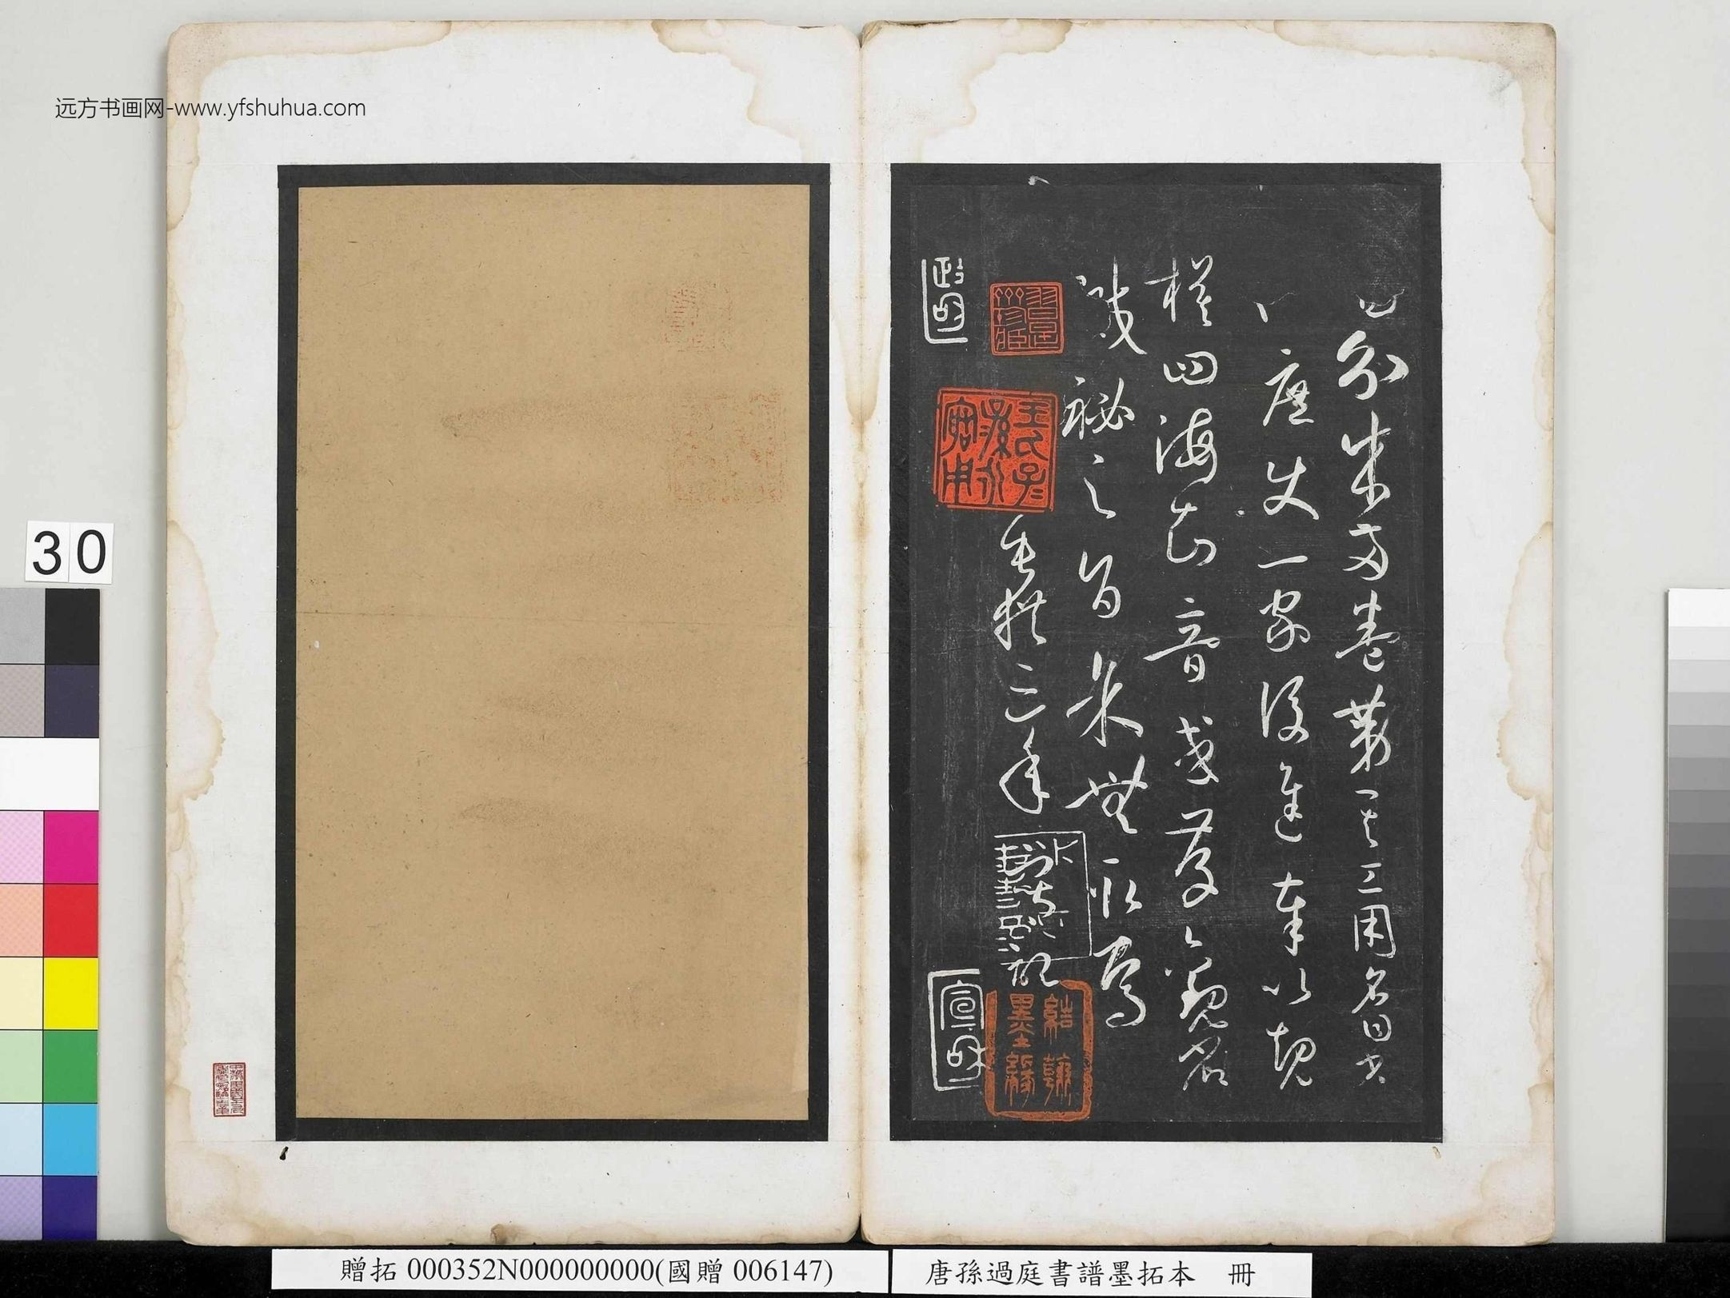 远方书画网-www.yfshuhua.com
分成兩卷第其工用名曰書
庶使一家後進奉以規
模四海知音或存觀省
緘秘之旨余無取焉
垂拱三年
政和
宣和
結翰墨緣
30
贈拓 000352N000000000(國贈 006147)
唐孫過庭書譜墨拓本 冊